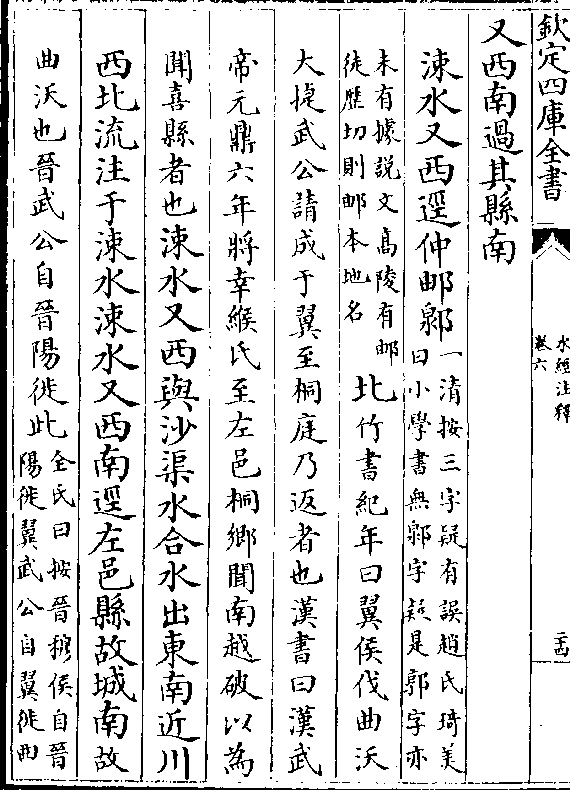 欽定四庫全書
水經注釋
卷六
二十四
又西南過其縣南
涑水又西逕仲郵郻一清按三字疑有誤趙氏琦美
曰小學書無郻字疑是郭字亦
未有據説文髙陵有郵
徒歴切則郵本地名北竹書紀年曰翼侯伐曲沃
大捷武公請成于翼至桐庭乃返者也漢書曰漢武
帝元鼎六年將幸緱氏至左邑桐鄉聞南越破以為
聞喜縣者也涑水又西與沙渠水合水出東南近川
西北流注于涑水涑水又西南逕左邑縣故城南故
曲沃也晉武公自晉陽徙此全氏曰按晉穆侯自晉
陽徙翼武公自翼徙曲